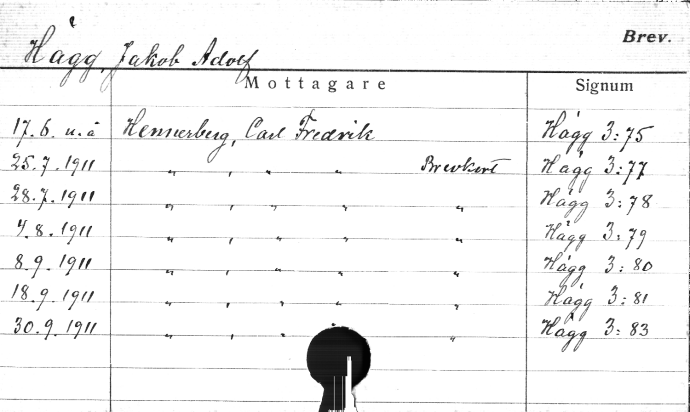 Brev.
Hägg, Jakob Adolf
Mottagare Signum
17.6. u.å Hennerberg, Carl Fredrik Hägg 3:75
25.7.1911 " , " " Brevkort Hägg 3:77
28.7.1911 " , " " " Hägg 3:78
4.8.1911 " , " " " Hägg 3:79
8.9.1911 " , " " " Hägg 3:80
18.9.1911 " , " " " Hägg 3:81
30.9.1911 " , " " " Hägg 3:83